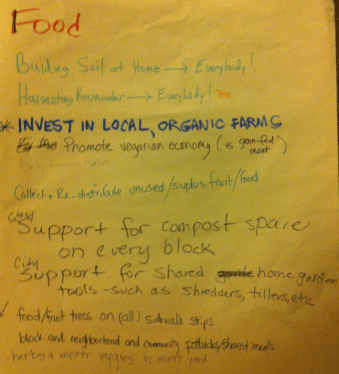 Food
Building Soil at Home → Everybody!
Harvesting Rainwater → Everybody! Yea
* INVEST IN LOCAL, ORGANIC FARMS
Promote vegarian economy (vs grain-fed
meat)
Collect + Re-distribute unused/suplus fruit/food
City
Support for compost space
on every block
City
Support for shared home garden
tools - such as shredders, tillers, etc
✓ food/fruit trees on (all) sidewalk strips
block and neighborhood and community potlucks/shared meals
- herbs + winter veggies in every yard